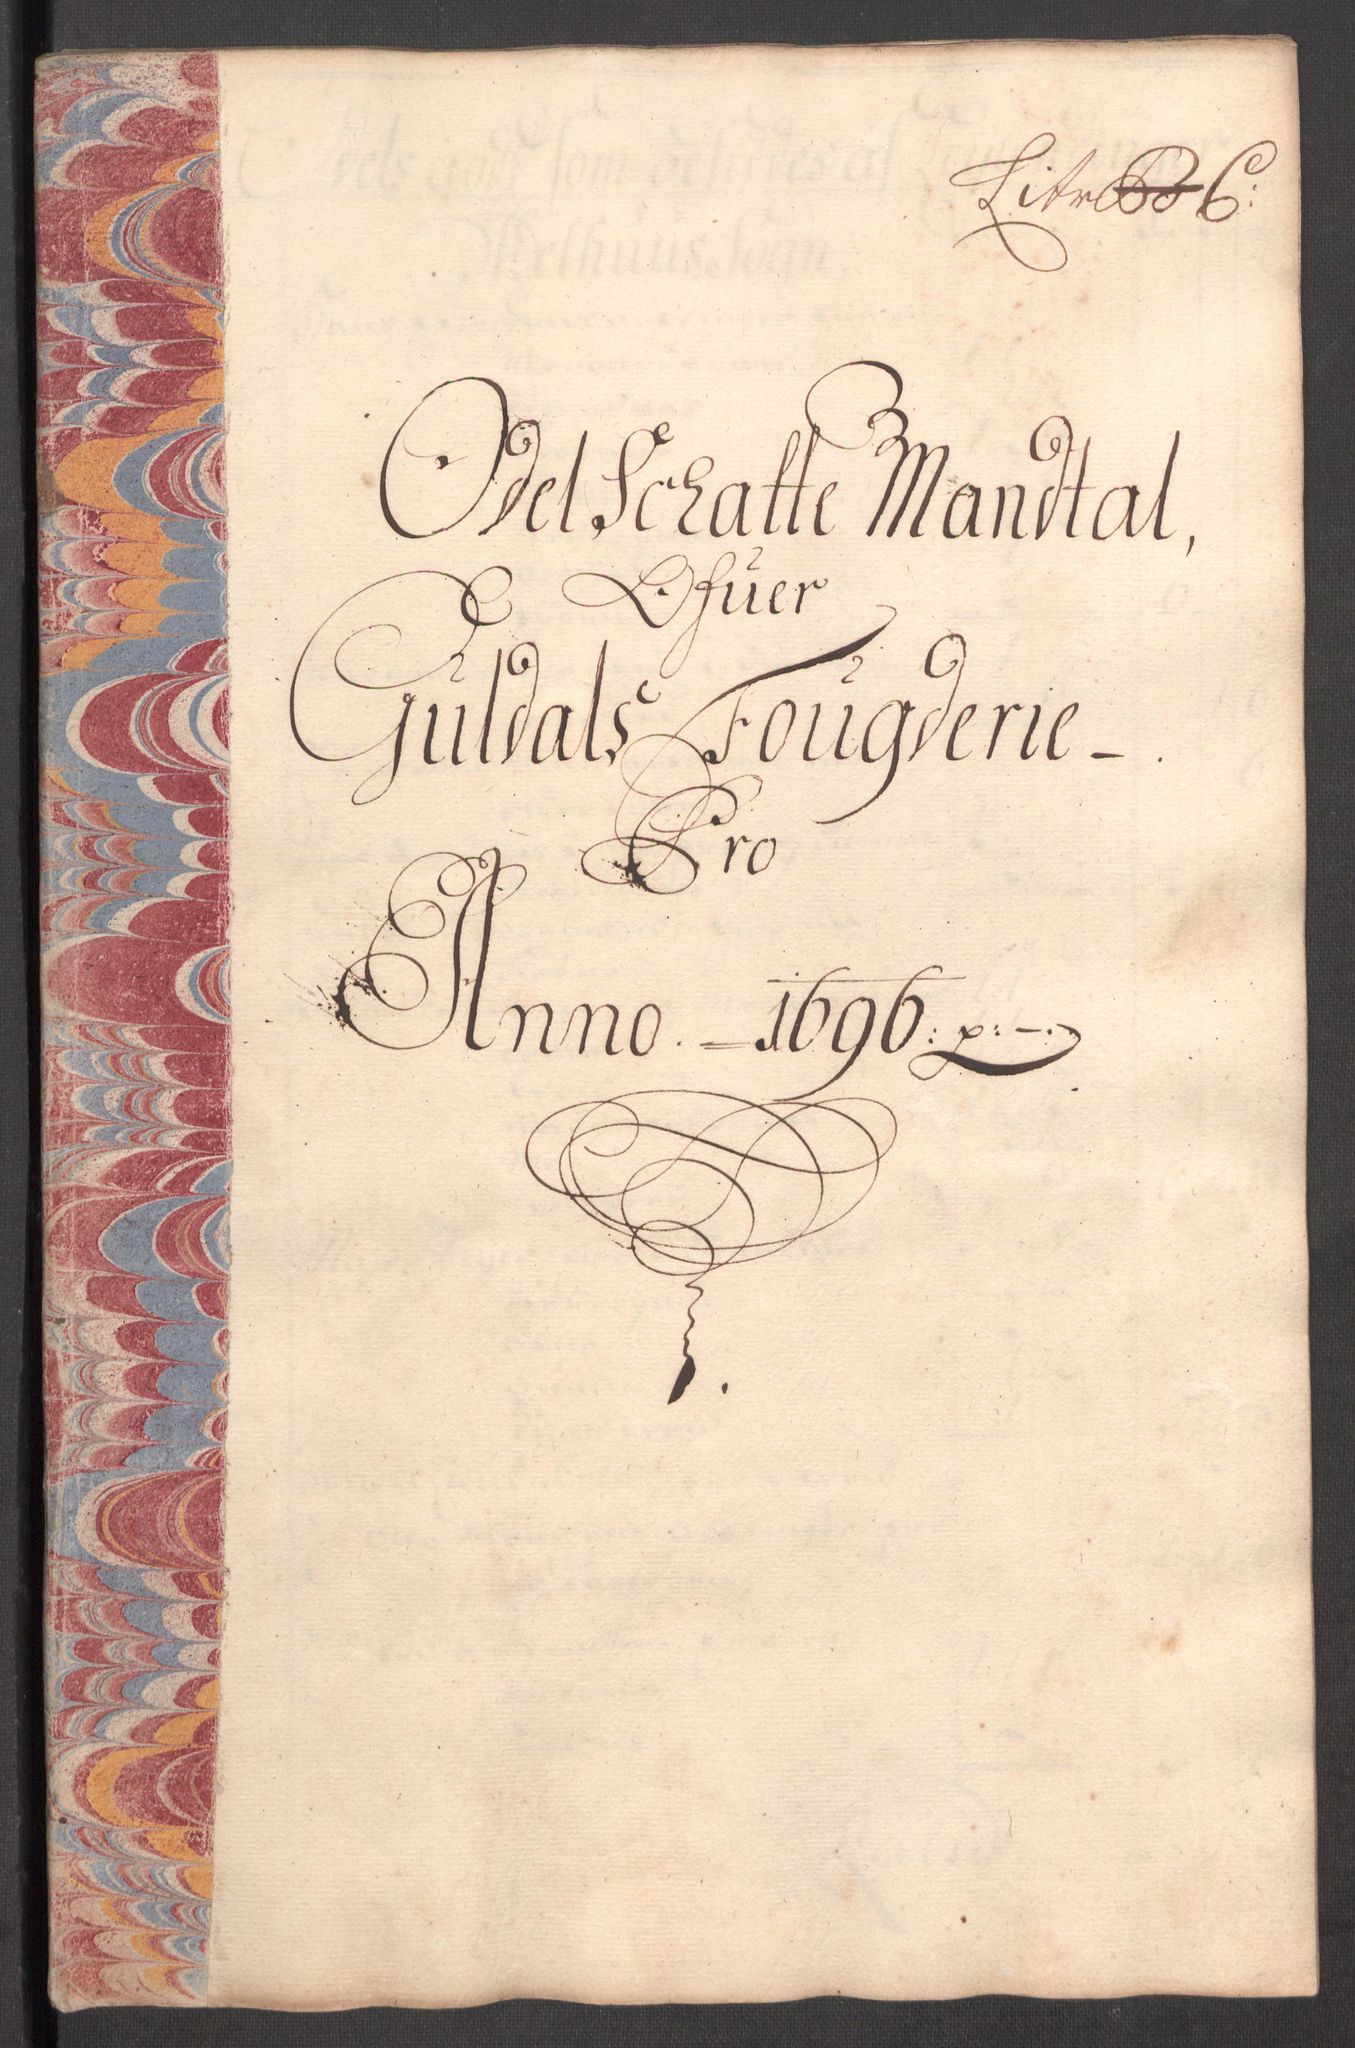 Litr C:
Odel Schatte Mandtal,
Ofuer
Guldals Fougderie -.
Pro
Anno. = 1696: p: -.